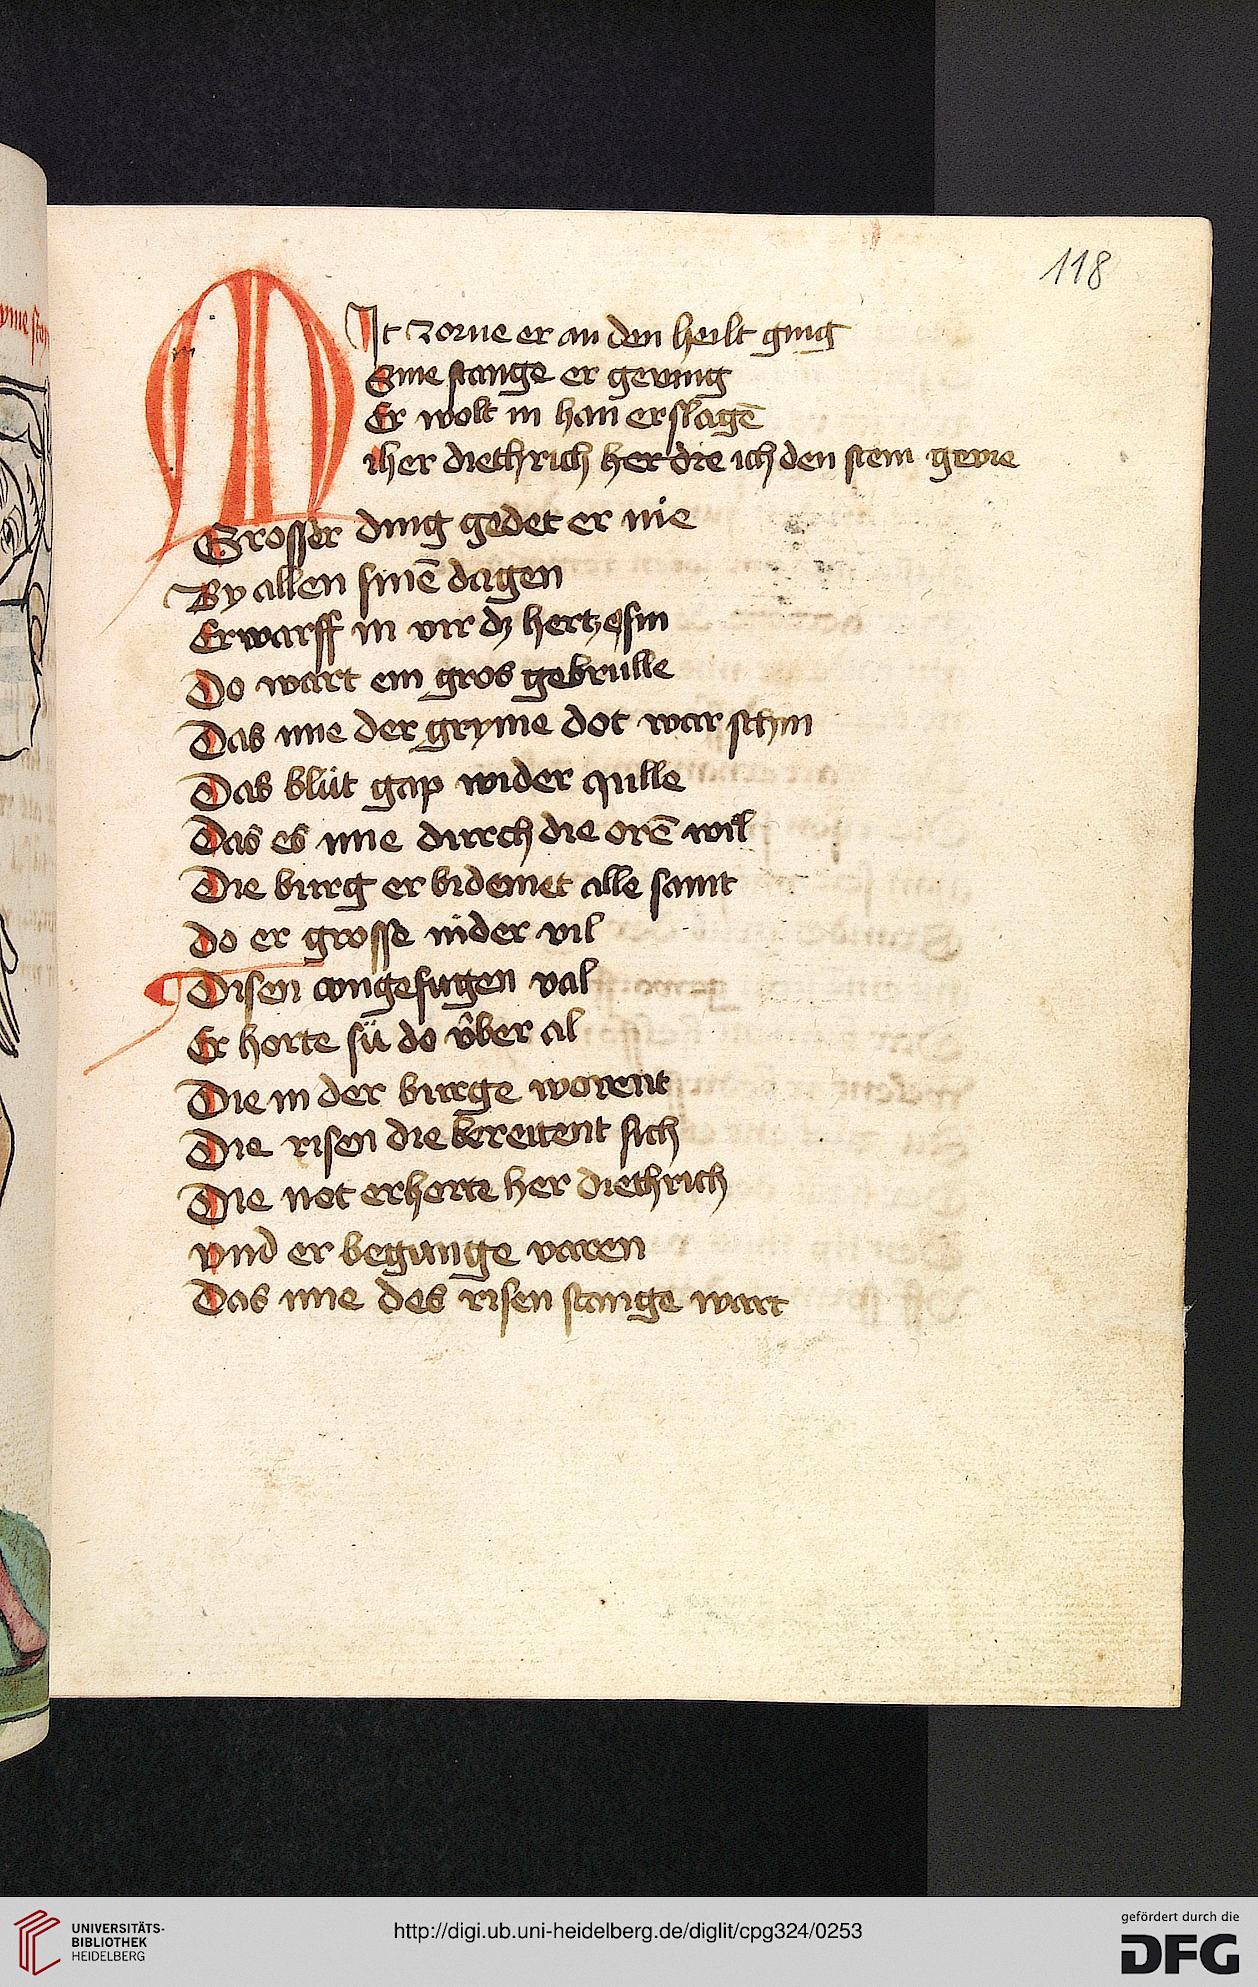 118
MIt zorne er an den heilt ging
Sine stange er geving
Er wolt in han erslagē
Her diethrich her die ich den stein gevie
Grosser ding gedet er nie
By allen sinē dagen
Er warff in vir dz hertze sin
Do wart ein gros gebrulle
Das ime der gryme dot war schin
Das blůt gap wider qulle
Das es ime durch die orē wil
Die burg er bidemet alle samt
do er grosse nider vil
Disen vngefugen val
Er horte sü do v̂ber al
Die in der burge worent
Die risen die bereitent sich
Die not erhorte her diethrich
vnd er begunge varen
Das ime des risen stange wart
UNIVERSITÄTS-
BIBLIOTHEK
HEIDELBERG
http://digi.ub.uni-heidelberg.de/diglit/cpg324/0253
gefördert durch die
DFG